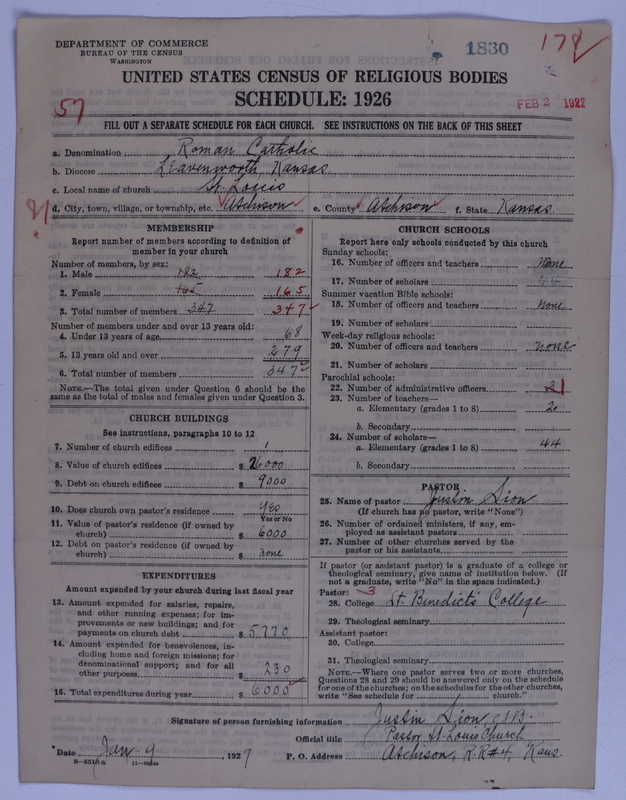 DEPARTMENT OF COMMERCE
BUREAU OF THE CENSUS
WASHINGTON
1830
179
UNITED STATES CENSUS OF RELIGIOUS BODIES
SCHEDULE: 1926
57
FEB 2 1927
FILL OUT A SEPARATE SCHEDULE FOR EACH CHURCH. SEE INSTRUCTIONS ON THE BACK OF THIS SHEET
a. Denomination Roman Catholic
b. Diocese Leavenworth, Kansas
c. Local name of church St. Louis
d. City, town, village, or township, etc. Atchison e. County Atchison f. State Kansas
MEMBERSHIP
Report number of members according to definition of
member in your church
Number of members, by sex:
1. Male 182 182
2. Female 165 165
3. Total number of members 347 347
Number of members under and over 13 years old:
4. Under 13 years of age 68
5. 13 years old and over 279
6. Total number of members 347
NOTE.—The total given under Question 6 should be the
same as the total of males and females given under Question 3.
CHURCH BUILDINGS
See instructions, paragraphs 10 to 12
7. Number of church edifices 1
8. Value of church edifices $ 26000
9. Debt on church edifices $ 9000
10. Does church own pastor's residence Yes
Yes or No
11. Value of pastor's residence (if owned by
church) $ 6000
12. Debt on pastor's residence (if owned by
church) $ none
EXPENDITURES
Amount expended by your church during last fiscal year
13. Amount expended for salaries, repairs,
and other running expenses; for im-
provements or new buildings; and for
payments on church debt $ 5770
14. Amount expended for benevolences, in-
cluding home and foreign missions; for
denominational support; and for all
other purposes $ 230
15. Total expenditures during year $ 6000
CHURCH SCHOOLS
Report here only schools conducted by this church
Sunday schools:
16. Number of officers and teachers none
17. Number of scholars
Summer vacation Bible schools:
18. Number of officers and teachers none
19. Number of scholars
Week-day religious schools:
20. Number of officers and teachers none
21. Number of scholars
Parochial schools:
22. Number of administrative officers 1
23. Number of teachers—
a. Elementary (grades 1 to 8) 2
b. Secondary
24. Number of scholars—
a. Elementary (grades 1 to 8) 44
b. Secondary
PASTOR
25. Name of pastor Justin Sion
(If church has no pastor, write "None")
26. Number of ordained ministers, if any, em-
ployed as assistant pastors
27. Number of other churches served by the
pastor or his assistants
If pastor (or assistant pastor) is a graduate of a college or
theological seminary, give name of institution below. (If
not a graduate, write "No" in the space indicated.)
Pastor: 3
28. College St. Benedict's College
29. Theological seminary
Assistant pastor:
30. College
31. Theological seminary
NOTE.—Where one pastor serves two or more churches,
Questions 28 and 29 should be answered only on the schedule
for one of the churches; on the schedules for the other churches,
write "See schedule for church."
Signature of person furnishing information Justin Sion OSB.
Official title Pastor St. Louis Church
Date Jan 9, 1927 P. O. Address Atchison, R.R#4, Kans.